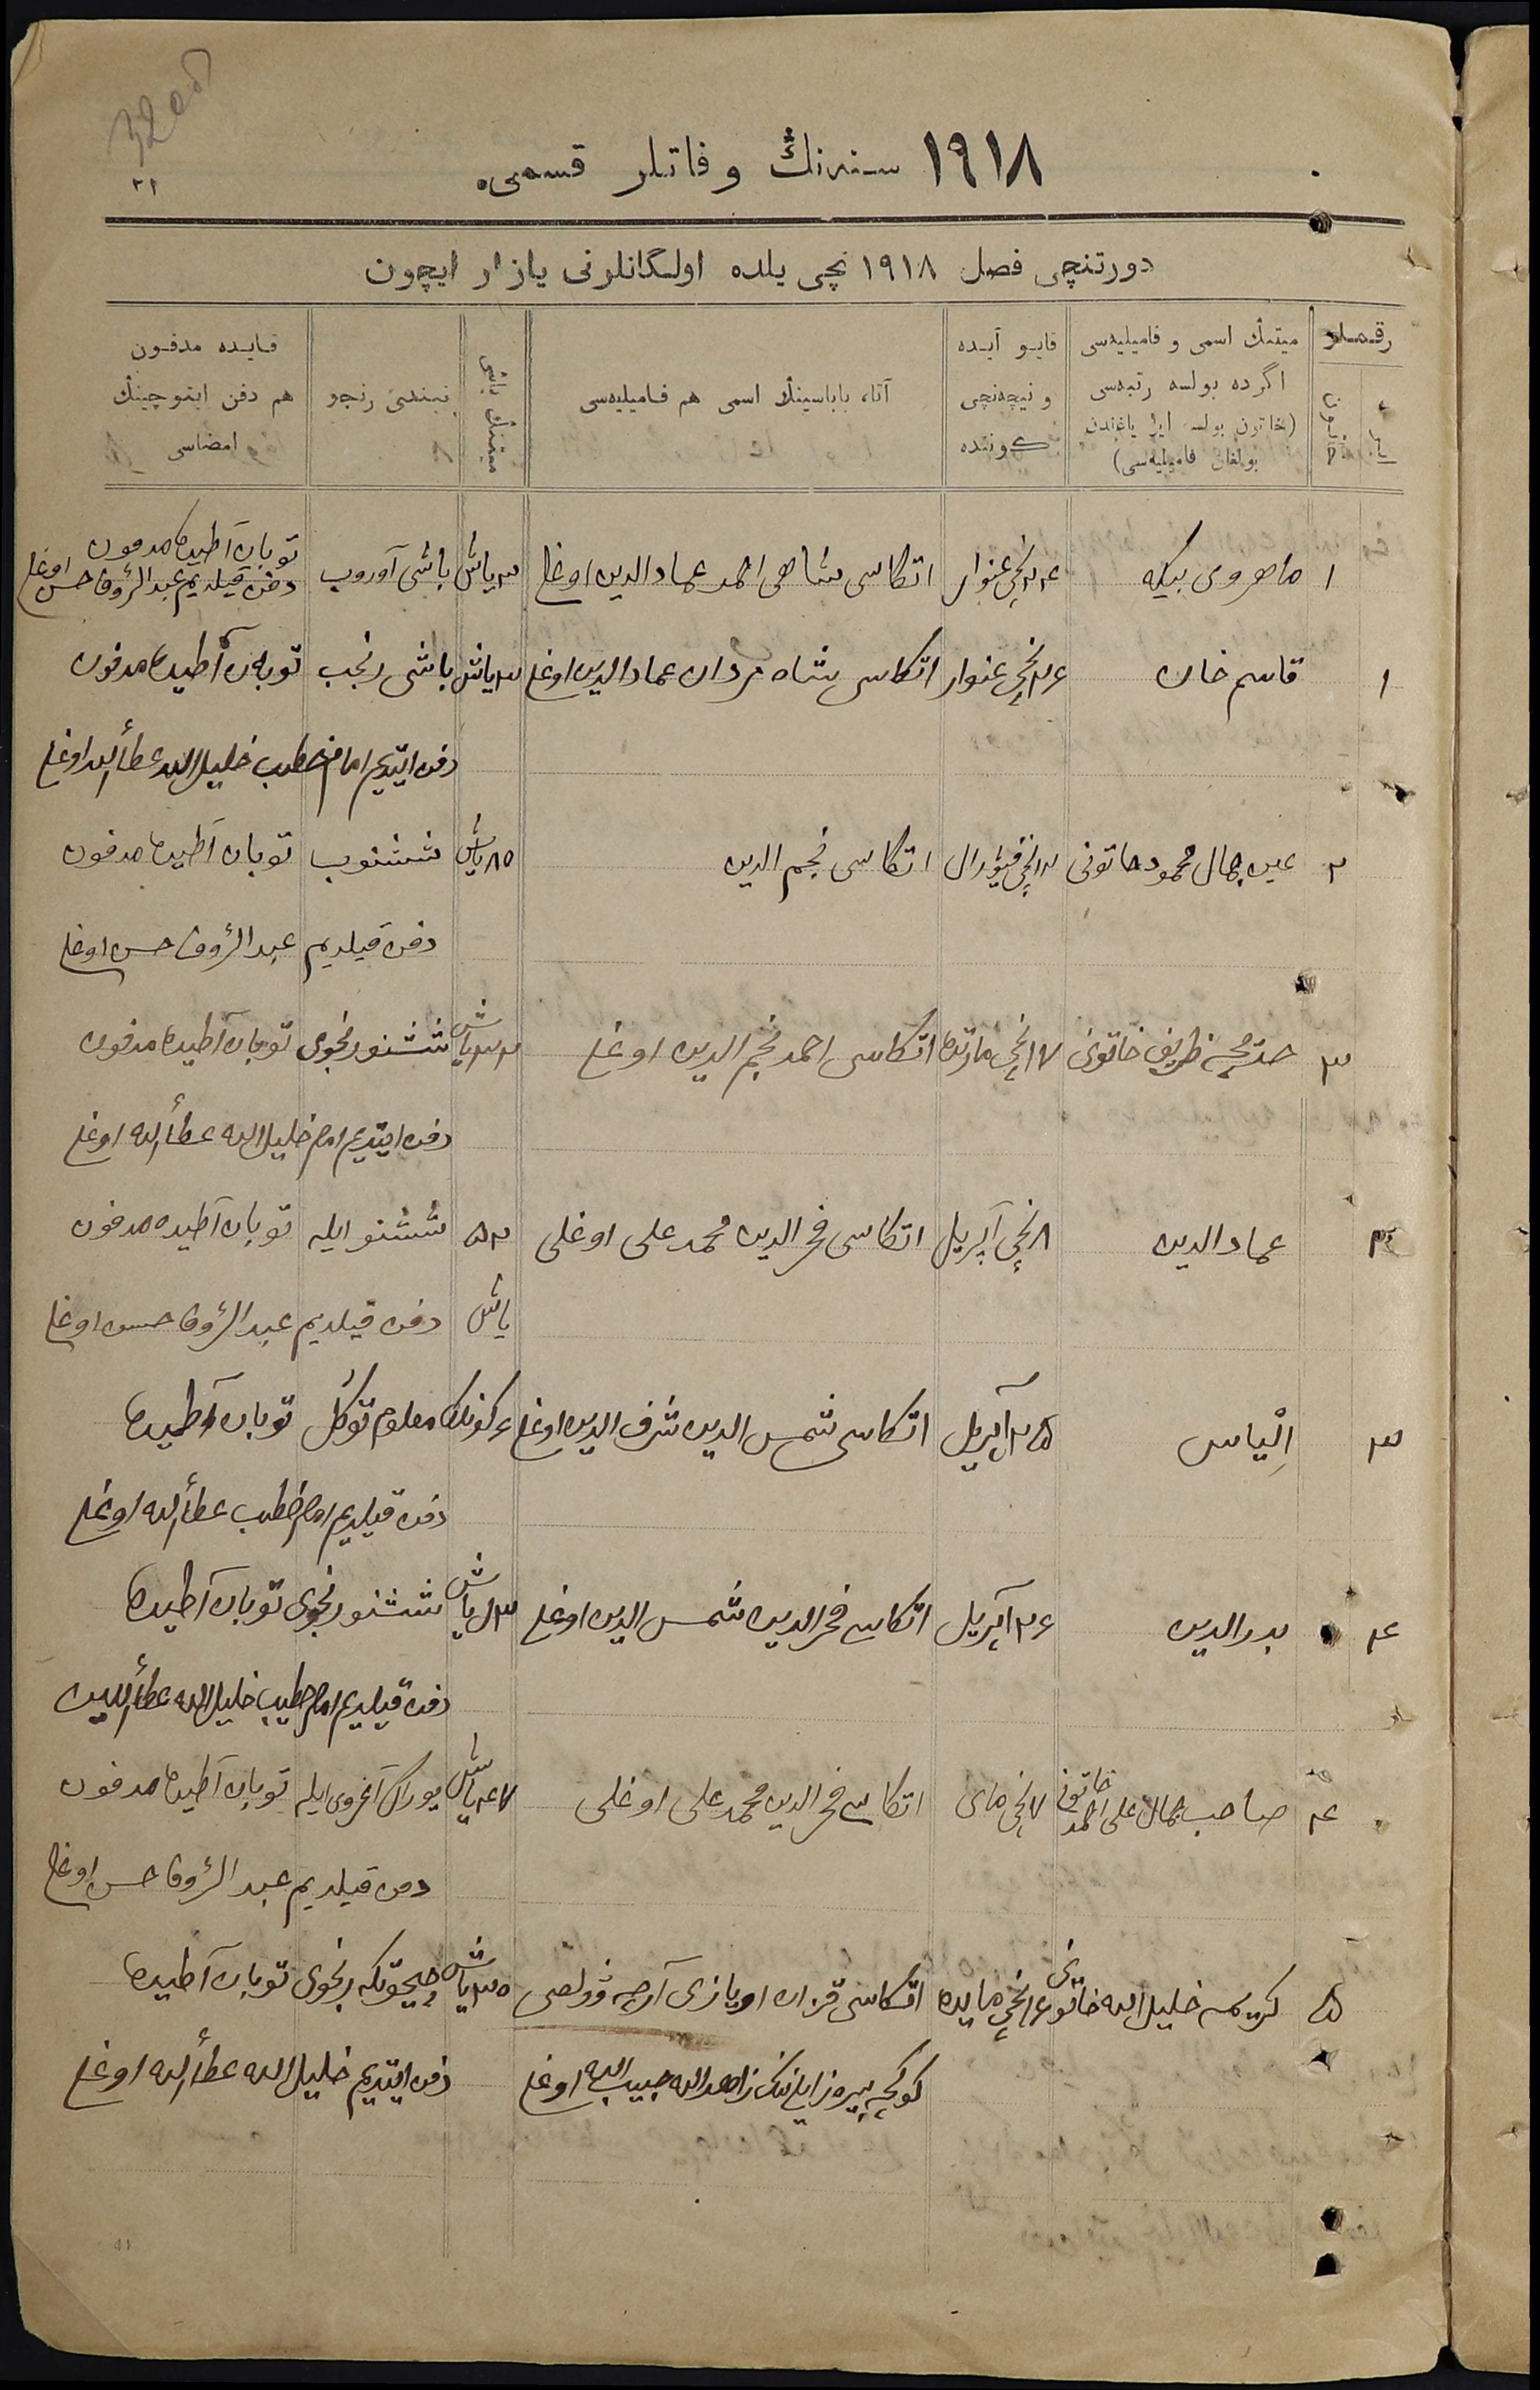 32 об
٣١
١٩١٨ سنه‌نڭ وفاتلر قسمی.
دورتنچی فصل ١٩١٨ نچی یلده اولگانلرنی یازار ایچون
رقملر
میتنڭ اسمی و فامیلیه‌سی اگرده بولسه رتبه‌سی (خاتون بولسه ایرا یاغندن بولغان فامیلیه‌سی)
قایو آیده و نیچه‌نچی کوننده
آتا، باباسینڭ اسمی هم فامیلیه‌سی
میتنڭ یاشی
نیندی رنجو
قایده مدفون هم دفن ایتوچینڭ امضاسی
١ ماهروی بیکه ٢٤نچی غنوار اتکاسی شاهی احمد عمادالدین اوغلی ٣ یاش باشی آوروب توبان آطیده مدفون
دفن قیلدیم عبدالرؤف حسن اوغلی
١ قاسم خان ٢٦نچی غنوار اتکاسی شاه مردان عمادالدین اوغلی ٣ یاش باشی رنجب توبان آطیده مدفون
دفن ایتدیم امام خطیب خلیل الله عطأالله اوغلی
٢ عین جمال محمود خاتونی ١٢نچی فیورال اتکاسی نجم الدین ٨٥ یاش ششنوب توبان آطیده مدفون
دفن قیلدیم عبدالرؤف حسن اوغلی
٣ ظریف خاتونی ١٧نچی مارتده اتکاسی احمد نجم الدین اوغلی ٣٢ یاش ششنو رنجوی توبان آطیده مدفون
دفن ایتدیم امام خلیل الله عطأالله اوغلی
٢ عمادالدین ٨نچی آپریل اتکاسی فخرالدین محمد علی اوغلی ٥٢ ششنو ایله توبان آطیده مدفون
یاش دفن قیلدیم عبدالرؤف حسن اوغلی
٣ اِلْیاس ٢٥ آپریل اتکاسی شمس الدین شرف الدین اوغلی ٤ کونلک معلوم توکل توبان آطیده
دفن قیلدیم امام خطیب عطأالله اوغلی
٤ بدرالدین ٢٦ آپریل اتکاسی فخرالدین شمس الدین اوغلی یاش ششنو رنجوی توبان آطیده
دفن قیلدیم امام خطیب خلیل الله
٤ صاحب جمال علی احمد خاتونی ٧نچی مای اتکاسی فخرالدین محمد علی اوغلی ٤٧ یاش یوراک آغروی ایله توبان آطیده مدفون
دفن قیلدیم عبدالرؤف حسن اوغلی
٥ کریمه خلیل الله خاتونی مایده اتکاسی قزان اویازی آرچه وولصی ٣٥ یاش رنجوی توبان آطیده
زاهدالله حبیب الله اوغلی دفن ایتدیم خلیل الله عطأالله اوغلی